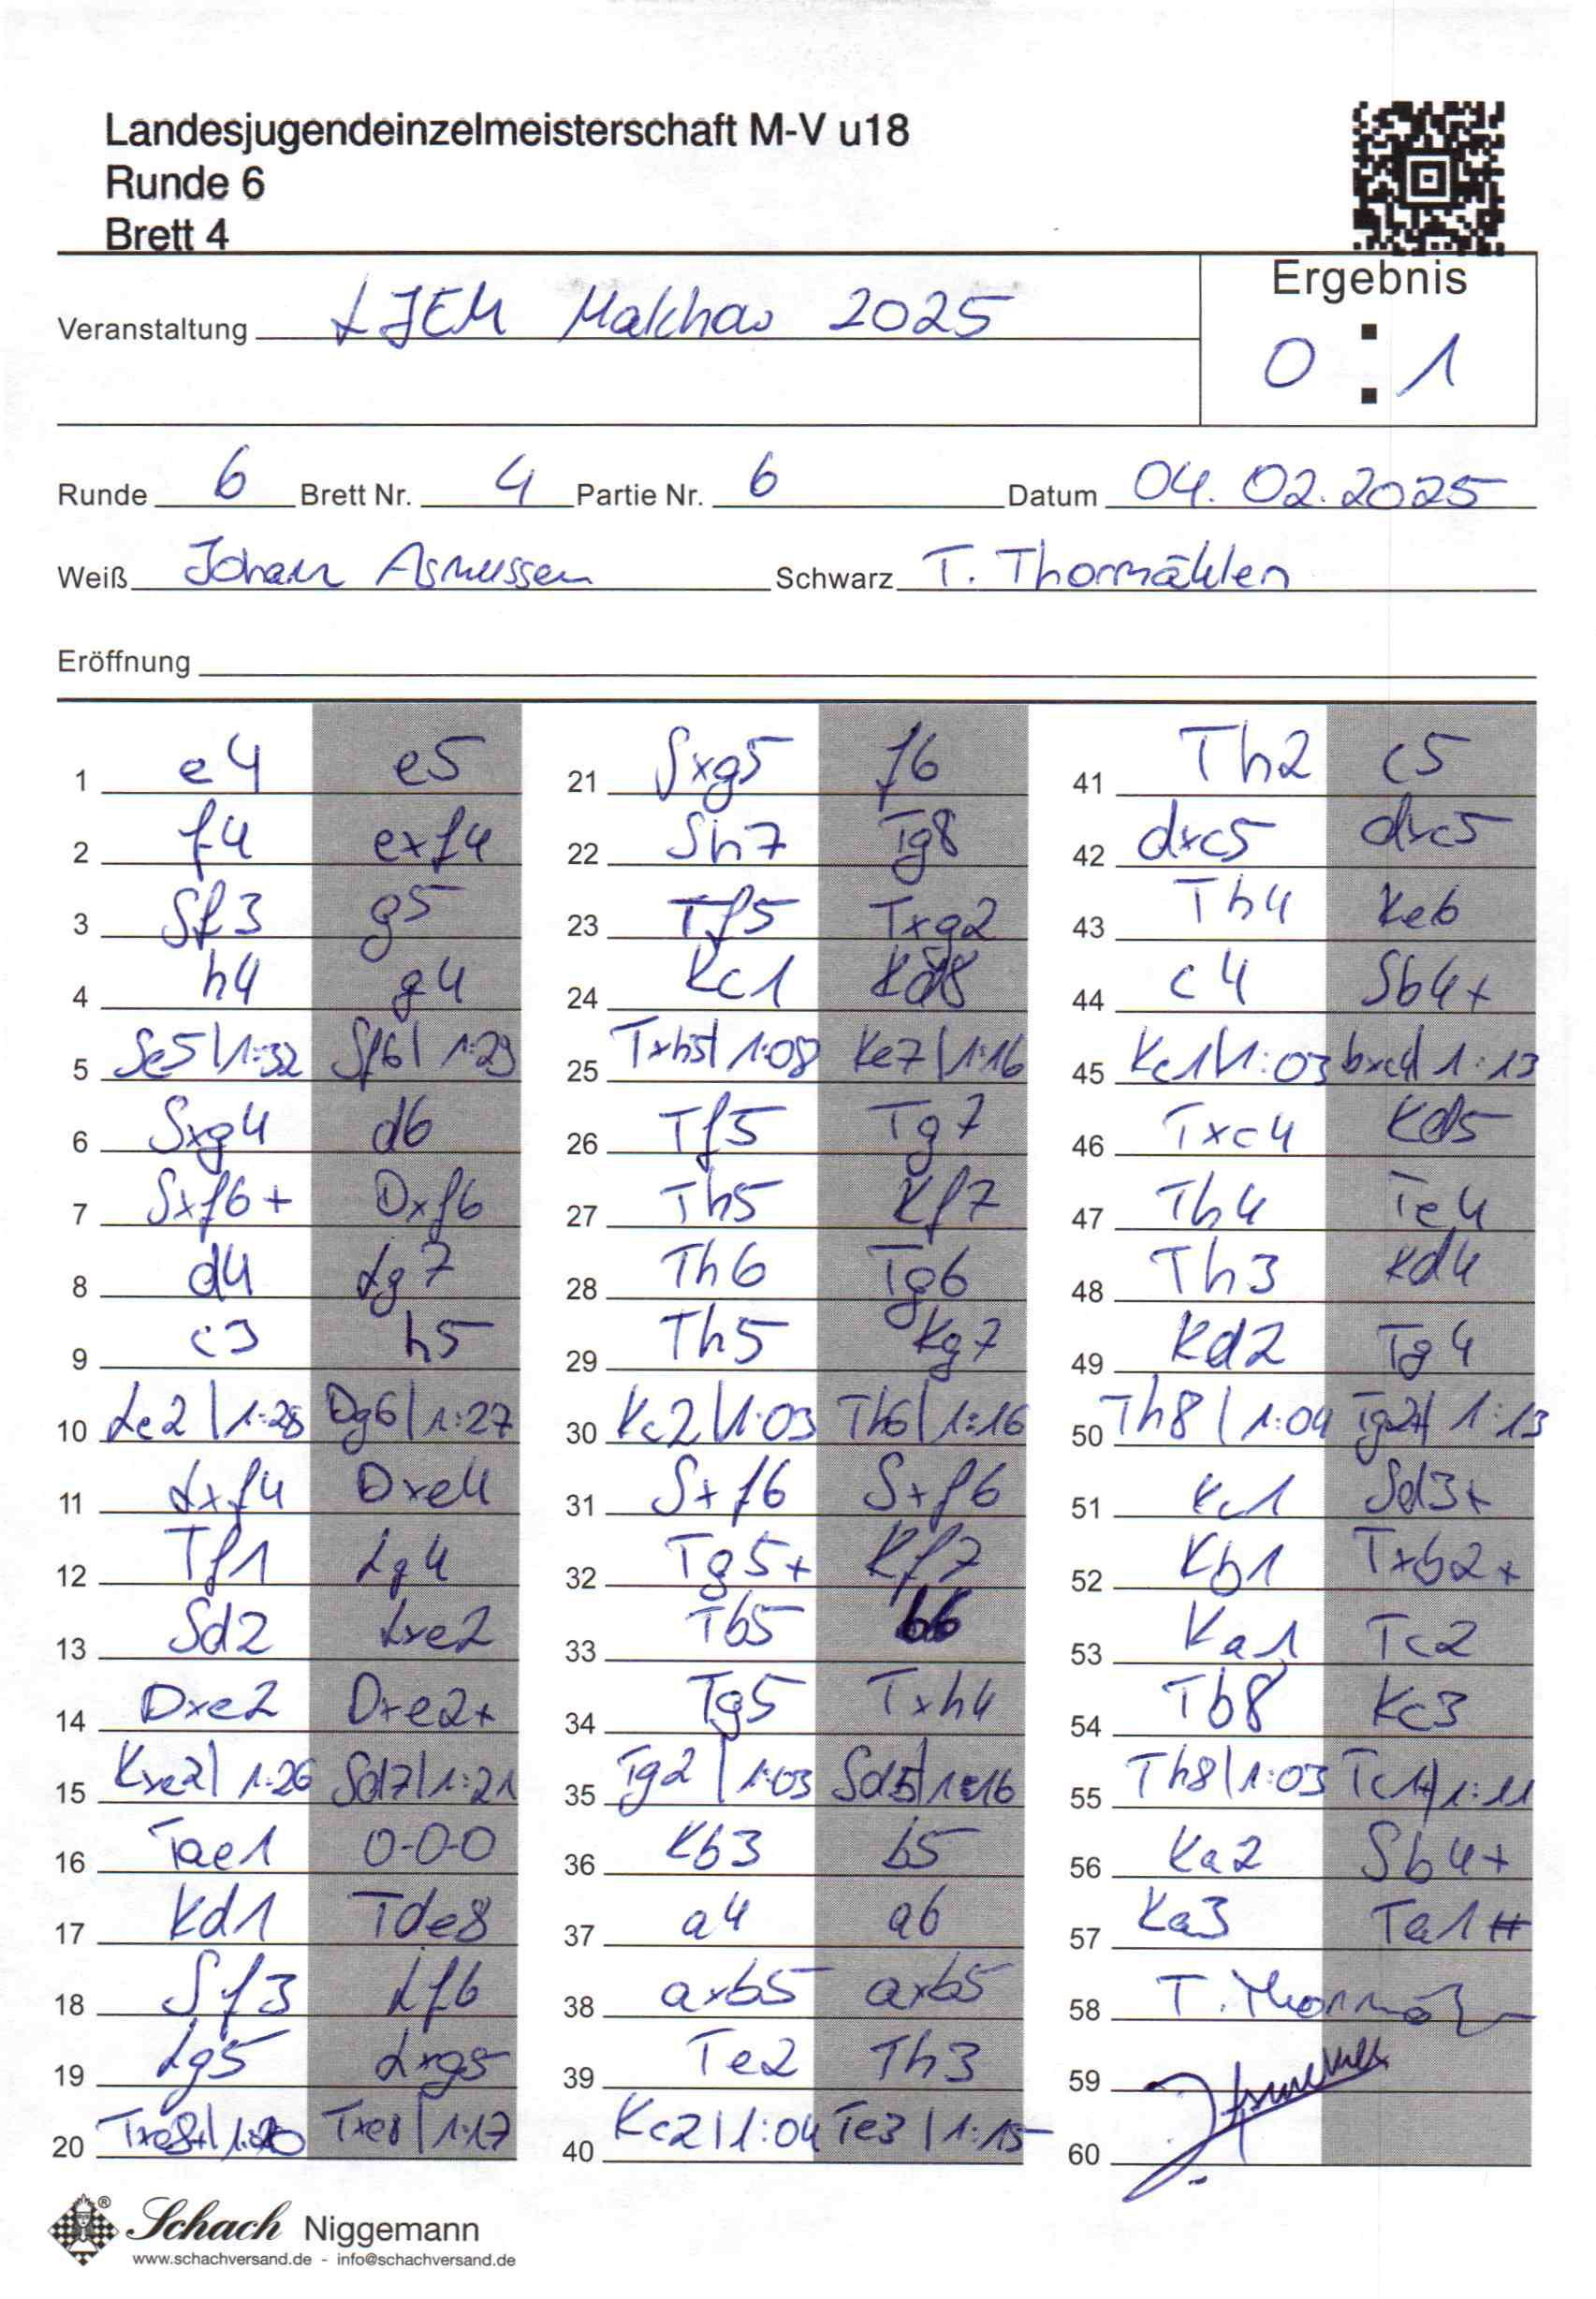 Landesjugendeinzelmeisterschaft M-V u18
Runde 6
Brett 4
Ergebnis
Veranstaltung LJEM Malchow 2025
0 : 1
Runde 6 Brett Nr. 4 Partie Nr. 6 Datum 04.02.2025
Weiß Johann Asmussen Schwarz T. Thormählen
Eröffnung
1 e4 e5
2 f4 exf4
3 Sf3 g5
4 h4 g4
5 Se5 | 1:32 Sf6 | 1:29
6 Sxg4 d6
7 Sxf6+ Dxf6
8 d4 Lg7
9 c3 h5
10 Le2 | 1:28 Dg6 | 1:27
11 Lxf4 Dxe4
12 Tf1 Lg4
13 Sd2 Lxe2
14 Dxe2 Dxe2+
15 Kxe2 | 1:26 Sd7 | 1:21
16 Tae1 0-0-0
17 Kd1 Tde8
18 Sf3 Lf6
19 Lg5 Lxg5
20 Txe8+ | 1:20 Txe8 | 1:17
21 Sxg5 f6
22 Sh7 Tg8
23 Tf5 Txg2
24 Kc1 Kd8
25 Txh5 | 1:08 Ke7 | 1:16
26 Tf5 Tg7
27 Th5 Kf7
28 Th6 Tg6
29 Th5 Kg7
30 Kc2 | 1:03 Th6 | 1:16
31 Sxf6 Sxf6
32 Tg5+ Kf7
33 Tb5 b6
34 Tg5 Txh4
35 Tg2 | 1:03 Sd5 | 1:16
36 Kb3 b5
37 a4 a6
38 axb5 axb5
39 Te2 Th3
40 Kc2 | 1:04 Te3 | 1:15
41 Th2 c5
42 dxc5 dxc5
43 Th4 Ke6
44 c4 Sb4+
45 Kc1 | 1:03 bxc4 | 1:13
46 Txc4 Kd5
47 Th4 Te4
48 Th3 Kd4
49 Kd2 Tg4
50 Th8 | 1:04 Tg2+ | 1:13
51 Kc1 Sd3+
52 Kb1 Txb2+
53 Ka1 Tc2
54 Tb8 Kc3
55 Th8 | 1:03 Tc1+ | 1:11
56 Ka2 Sb4+
57 Ka3 Ta1#
58 T. Thormählen
59
60
® Schach Niggemann
www.schachversand.de - info@schachversand.de